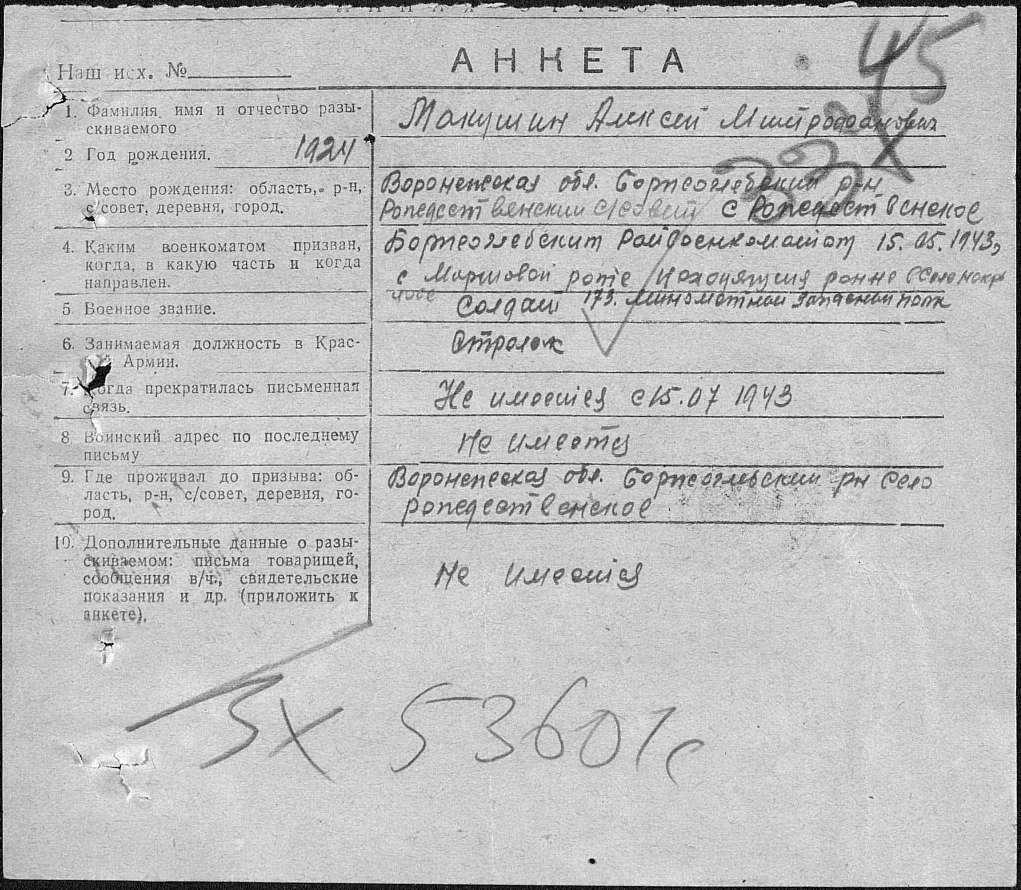 45
АНКЕТА
Наш исх. №
1. Фамилия имя и отчество разы-
скиваемого
Макушин Алексей Митрофанович
2 Год рождения. 1924
3. Место рождения: область, р-н,
с/совет, деревня, город.
Воронежская обл. Борисоглебский р-н
Рождественский с/совет с Рождественское
4. Каким военкоматом призван,
когда, в какую часть и когда
направлен.
Борисоглебским Райвоенкоматом 15.05.1943,
с Маршовой роте находящия ранне
5. Военное звание.
Солдат 173. Минометной Запасной полк
6. Занимаемая должность в Крас-
Армии.
Стрелок
7. Когда прекратилась письменная
связь.
Не имеется с 15.07 1943
8 Воинский адрес по последнему
письму
Не имеется
9. Где проживал до призыва: об-
ласть, р-н, с/совет, деревня, го-
род.
Воронежская обл. Борисоглевский рн село
рождественское
10. Дополнительные данные о разы-
скиваемом: письма товарищей,
сообщения в/ч., свидетельские
показания и др. (приложить к
анкете).
Не имеется
53601с